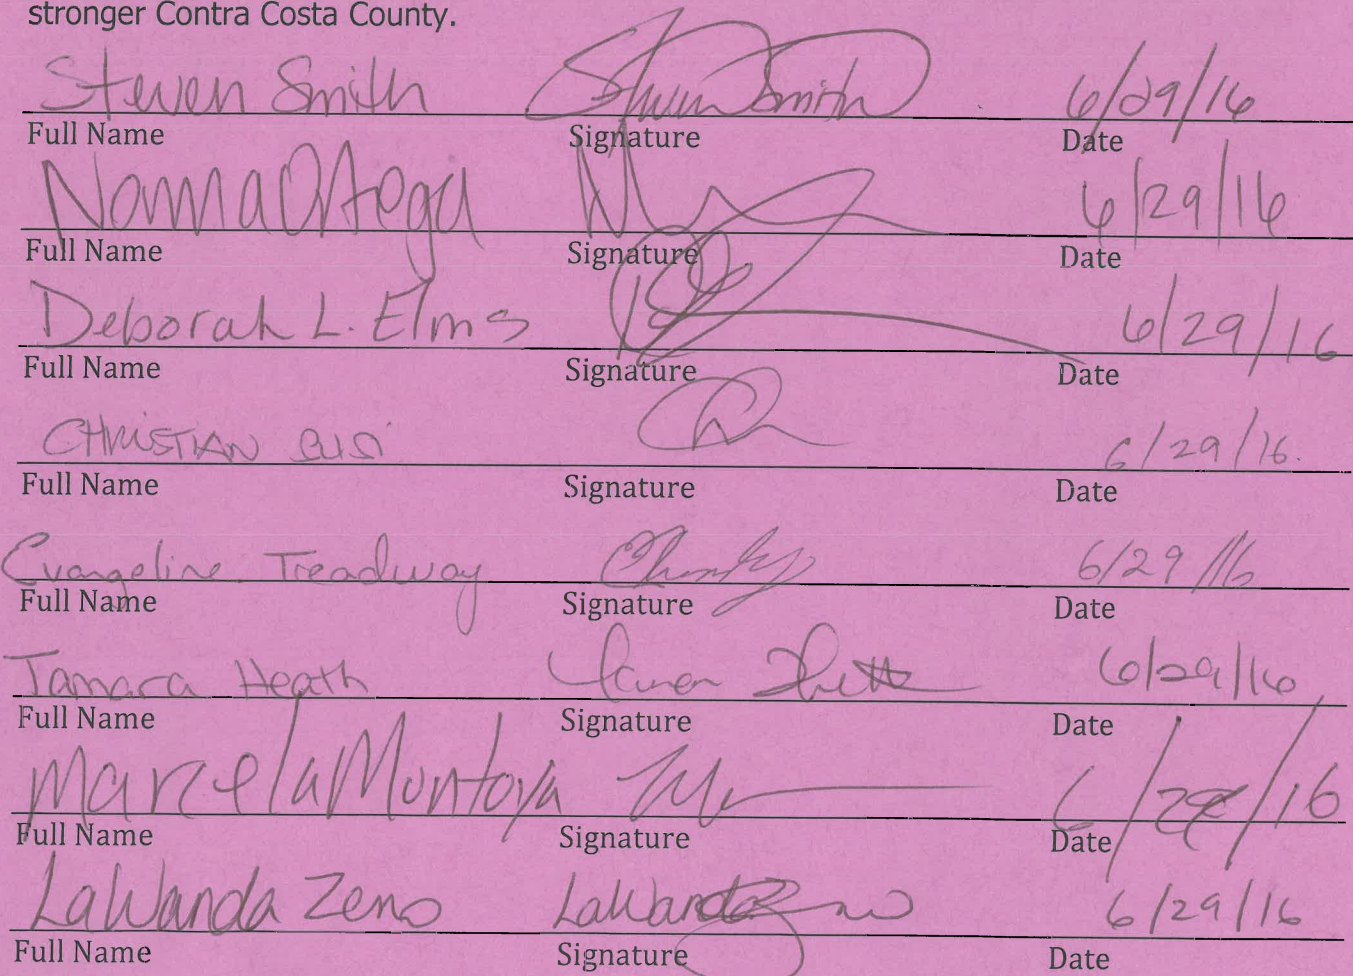 stronger Contra Costa County.
Steven Smith Steven Smith 6/29/16
Full Name Signature Date
Norma Ortega 6/29/16
Full Name Signature Date
Deborah L. Elms 6/29/16
Full Name Signature Date
CHRISTIAN SUSI 6/29/16.
Full Name Signature Date
Evangeline Treadway 6/29/16
Full Name Signature Date
Tamara Heath 6/29/16
Full Name Signature Date
Marcela Montoya
Full Name Signature Date
LaWanda Zeno LaWanda Zeno 6/29/16
Full Name Signature Date